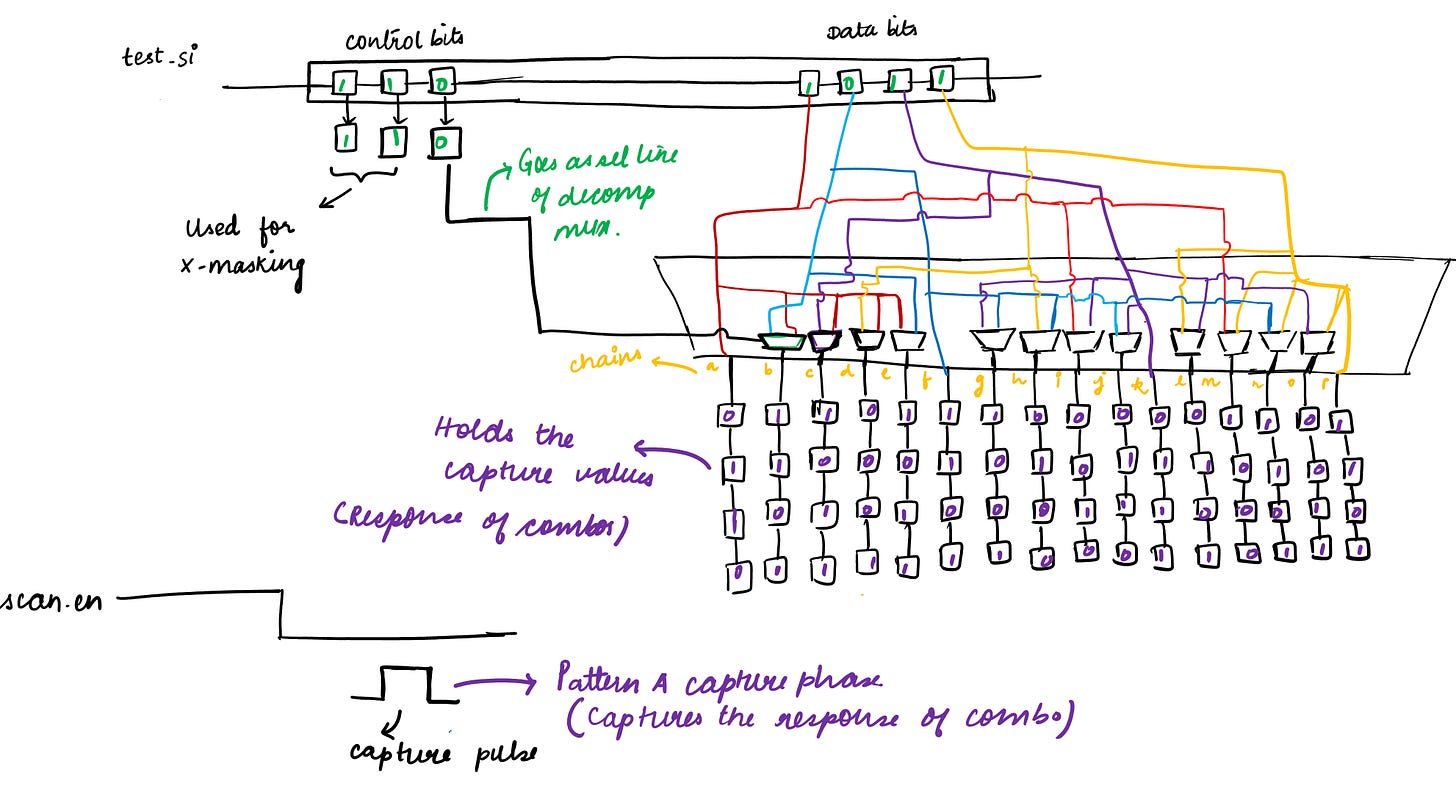 control bits
Data bits
test_si
1 1 0 1 0 1 1
1 1 0
Goes as sel line
of decomp
mux.
Used for
X-masking
chains
a b c d e f g h i j k l m n o p
0 1 1 0 1 1 1 0 0 0 0 0 1 1 0 1
Holds the
capture values
(Response of combos)
1 1 0 0 0 1 0 1 0 1 1 1 0 1 0 1
1 0 1 0 1 0 0 0 1 1 1 0 0 0 1 0
0 1 1 1 1 1 1 0 0 0 1 1 0 1 1 1
scan.en
Pattern A capture phase
(Captures the response of combo)
capture pulse